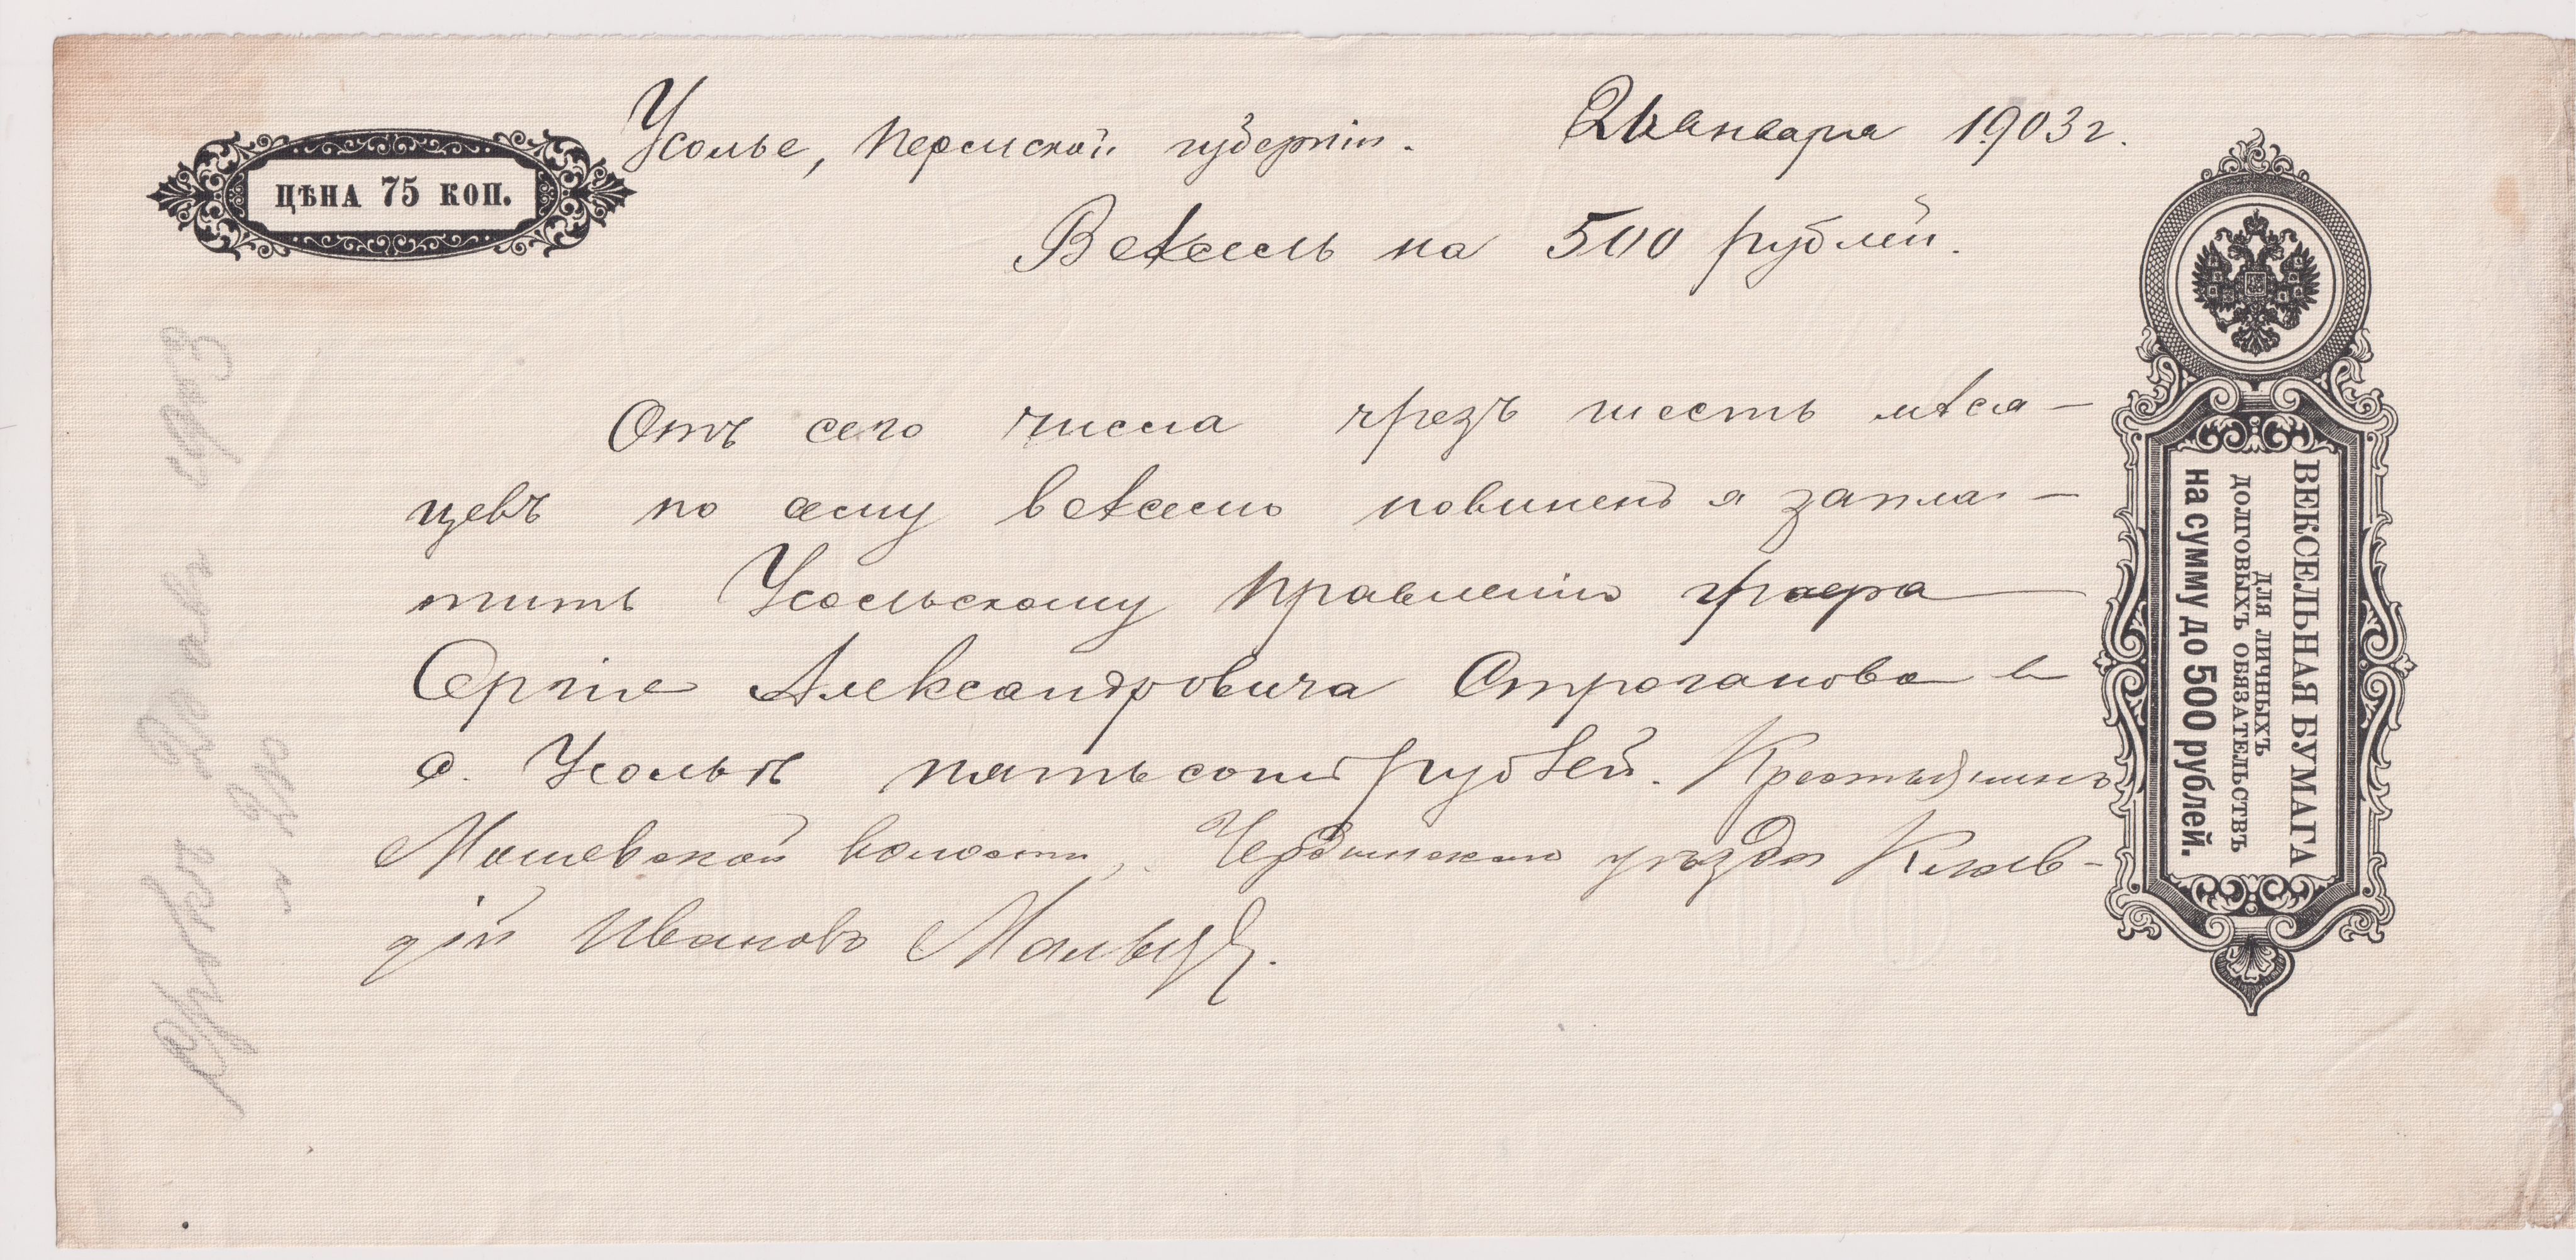 ЦѢНА 75 КОП.
Усолье, Пермской губернiи. Января 1903 г.
Вексель на 500 рублей.
Отъ сего числа чрезъ шесть мѣся-
цевъ по сему векселю повиненъ я запла-
тить Усольскому Правленiю графа
Сергiя Александровича Строганова в
с. Усольѣ пятьсотъ рублей. Крестьянинъ
Мошевской волости, Чердынскаго уѣзда Клав-
дiй Ивановъ
ВЕКСЕЛЬНАЯ БУМАГА
ДЛЯ ЛИЧНЫХЪ
ДОЛГОВЫХЪ ОБЯЗАТЕЛЬСТВЪ
на сумму до 500 рублей.